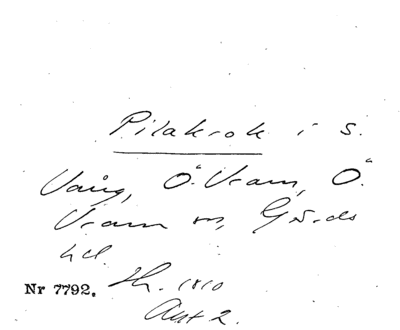 Pilakrok i S.
Vång, Ö. Vram, Ö.
Vram sn, Gärds
hd.
Nr 7792. Jh. 1810
Akt 2.